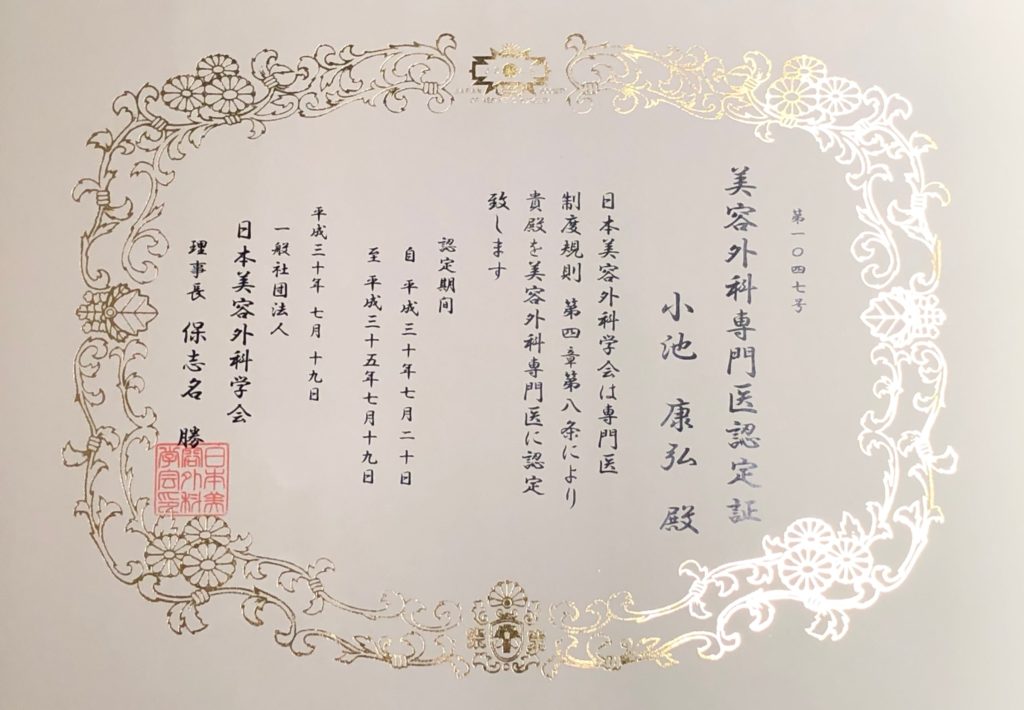 第一〇四七号
美容外科専門医認定証
小池 康弘 殿
日本美容外科学会は専門医
制度規則 第四章第八条により
貴殿を美容外科専門医に認定
致します
認定期间
自 平成三十年七月二十日
至 平成三十五年七月十九日
平成三十年 七月 十九日
一般社団法人
日本美容外科学会
理事長 保志名 勝
日本美
容外科
学会印